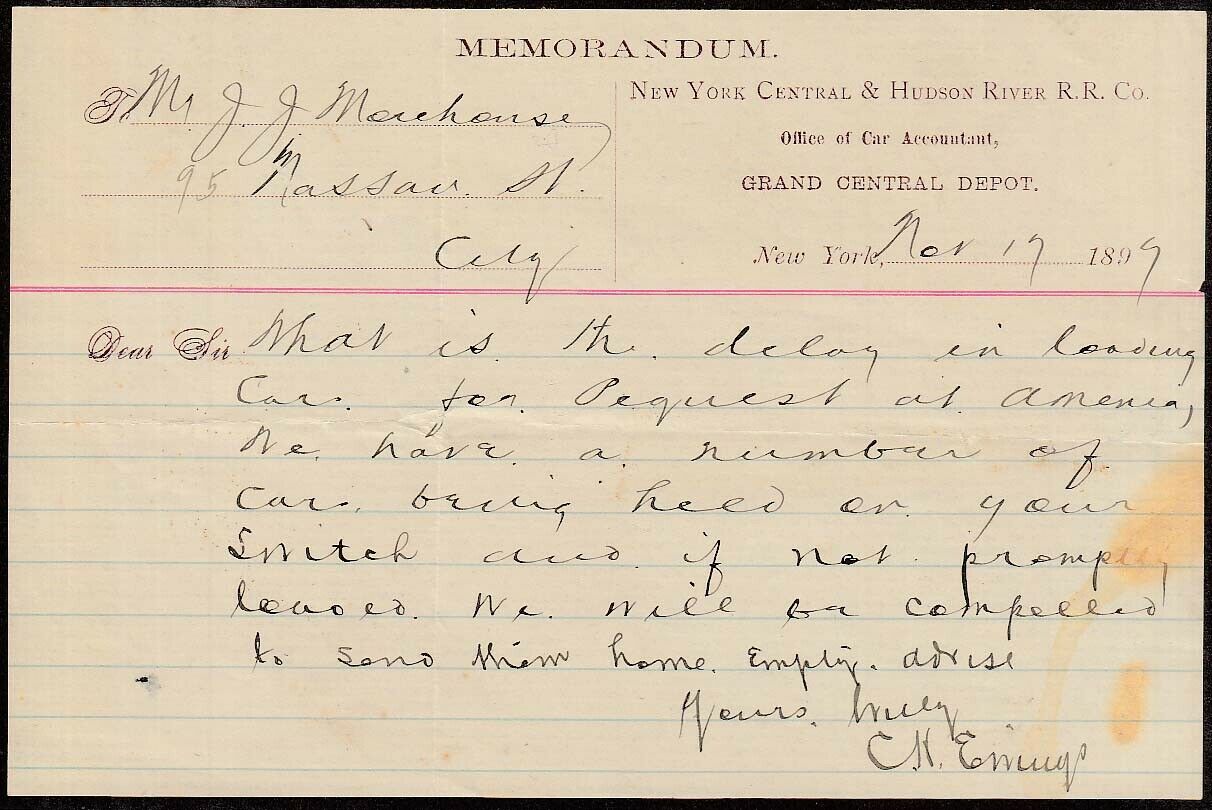 MEMORANDUM.
To Mr J. J. Morehouse
95 Nassau. St.
City
NEW YORK CENTRAL & HUDSON RIVER R.R. CO.
Office of Car Accountant,
GRAND CENTRAL DEPOT.
New York, Nov 19 1899
Dear Sir What is the delay in loading
Cars. for Pequest at Amenia,
We have a number of
cars. being held on your
Switch and if not promptly
loaded. We will be compelled
to send them home. Empty. advise
Yours. truly
C.